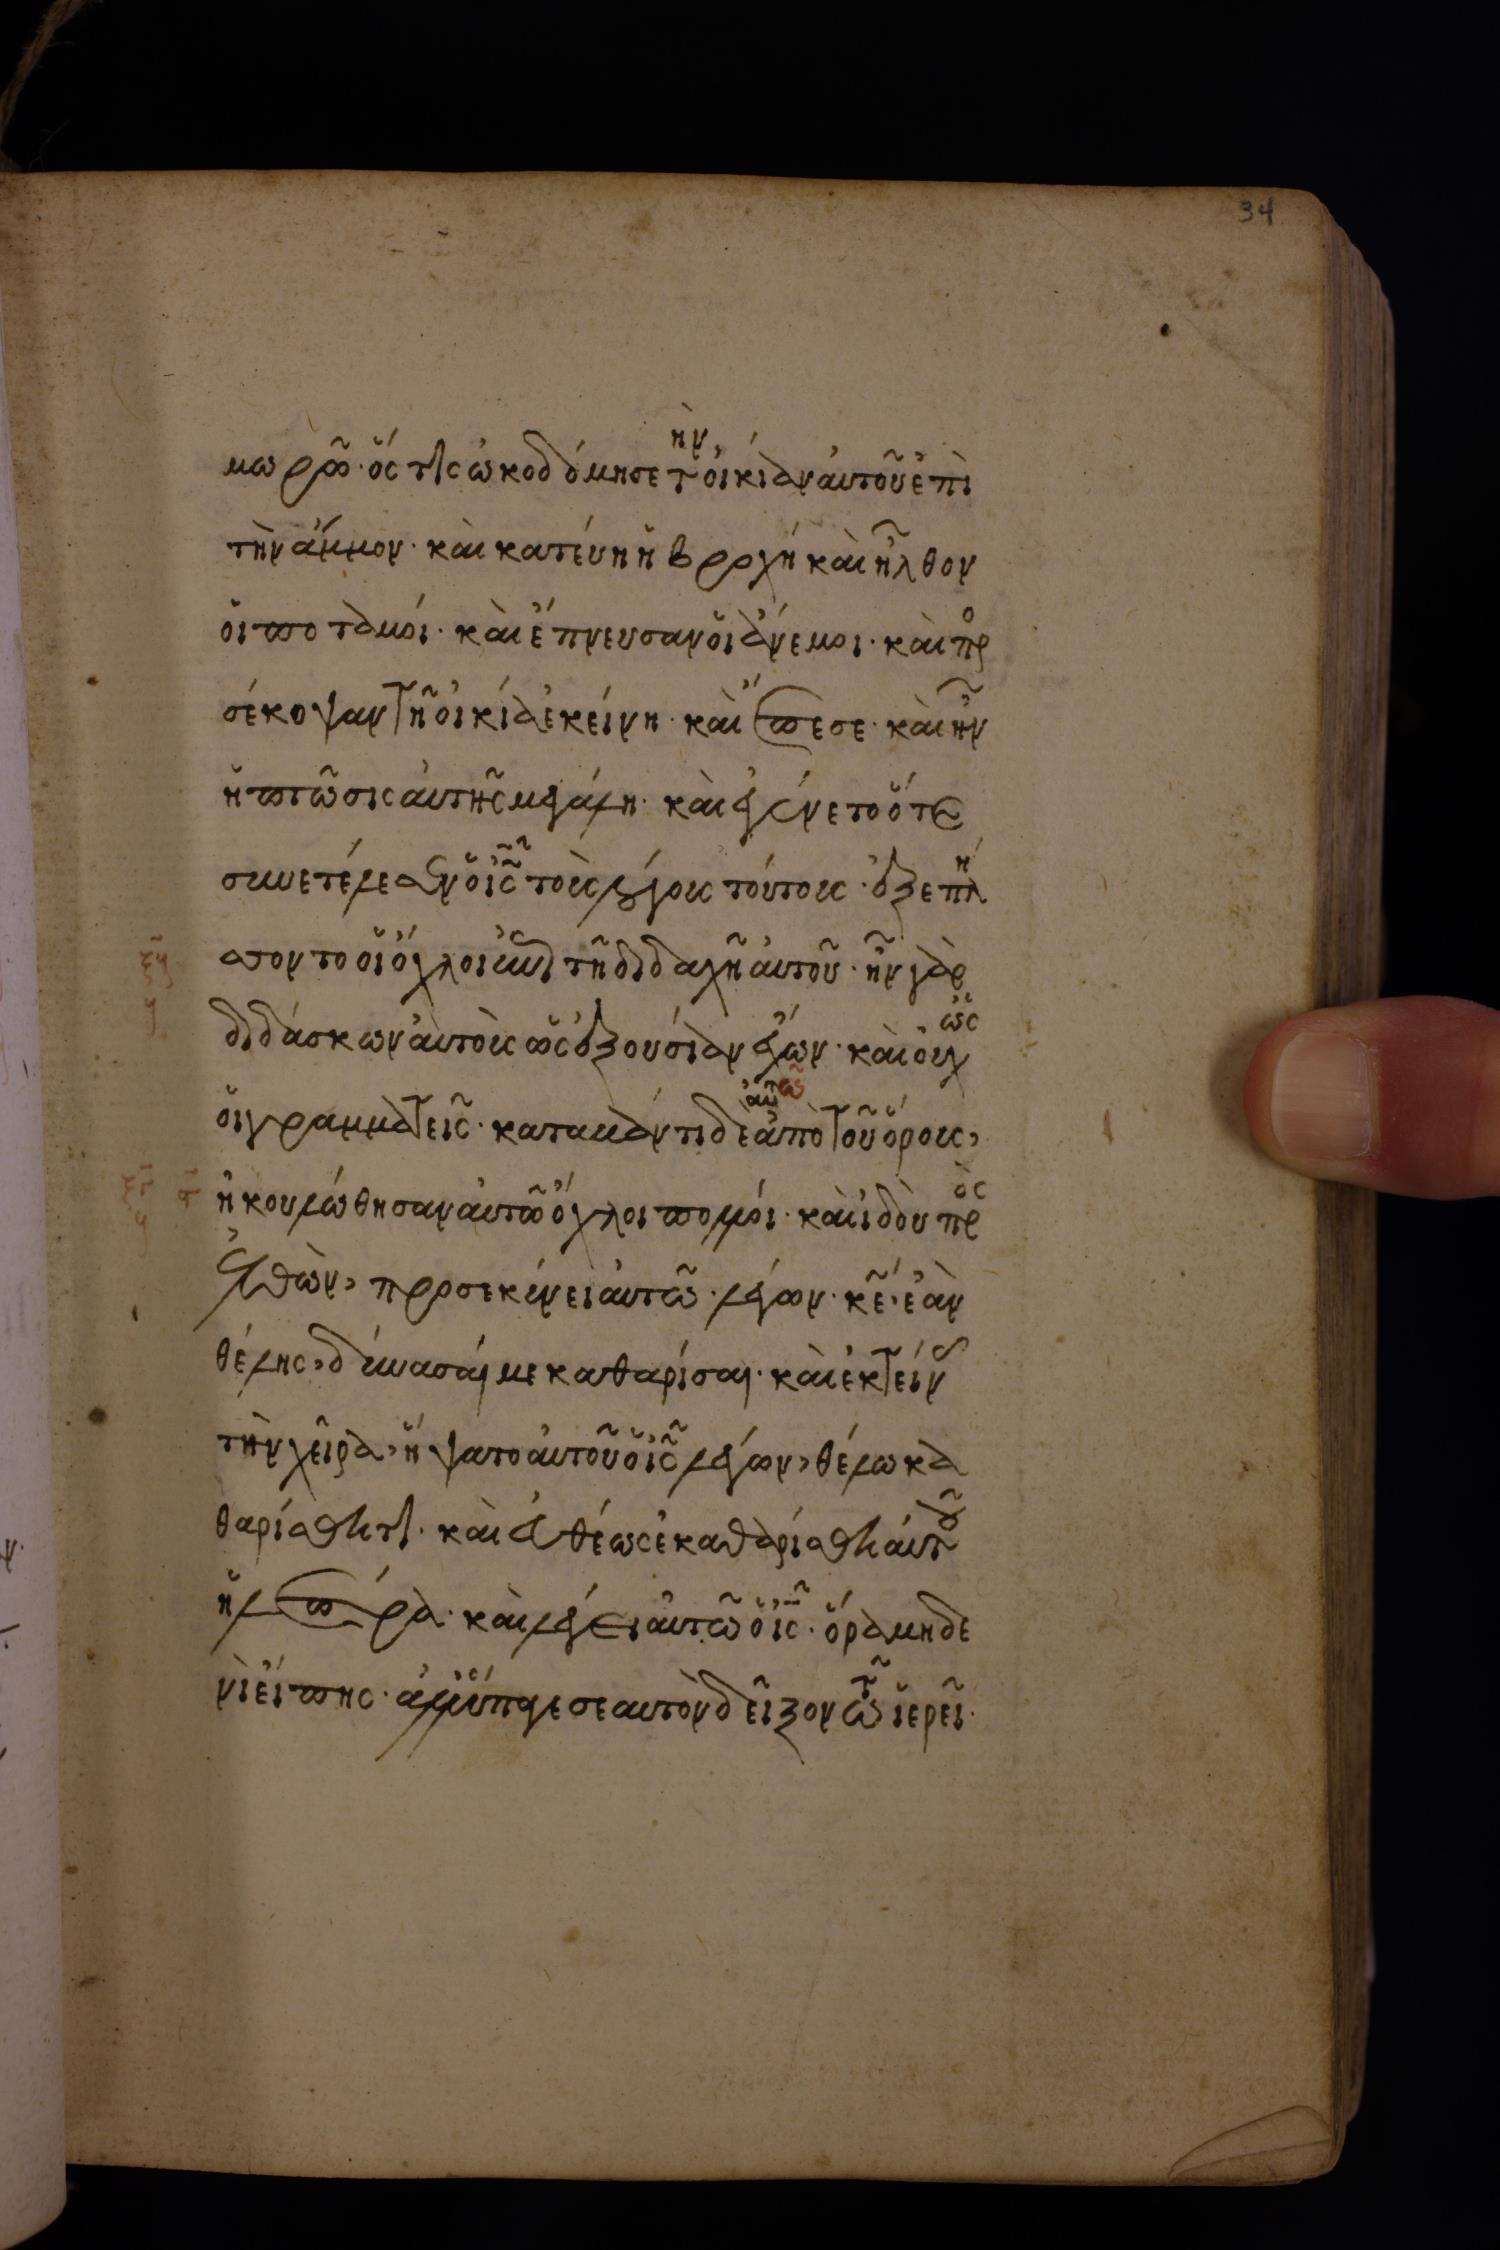 34
μωρῶ· ὅς τις ὠκοδόμησε τὴν οἰκίαν αὐτοῦ ἐπὶ
τὴν ἄμμον· καὶ κατέυη ἡ βροχή καὶ ἦλθον
ὁι ποταμόι· καὶ ἔπνευσαν ὁι ἄνεμοι· καὶ προ
σέκοψαν τῆ οἰκία ἐκείνη· καὶ ἔπεσε· καὶ ἦν
ἡ πτῶσις ἀυτῆς μεγάλη· καὶ ἐγένετο ὅτε
συνετέλεσεν ὁ ις̃ τοὺς λόγους τούτους· ἐξεπλή
σοντο οἱ ὄχλοι ἐπὶ τῆ διδαχῆ ἀυτοῦ· ἦν γὰρ
διδάσκων ἀυτοὺς ὡς ἐξουσίαν ἔχων· καὶ οὐχ ὡς
ὁι γραμματεῖς· καταβάντι δὲ ἀυτῶ ἀπὸ τοῦ ὄρους,
ἠκολούθησαν ἀυτῶ ὄχλοι πολλόι· καὶ ἰδὸυ λεπρὸς
ἐλθὼν, προσεκύνει ἀυτῶ· λέγων· κε̃· ἐὰν
θέλης, δύνασαί με καθαρίσαι· καὶ ἐκτείνας
τὴν χεῖρα, ἥψατο ἀυτοῦ ὁ ις̃ λέγων, θέλω κα
θαρίσθητι· καὶ ἐυθέως ἐκαθαρίσθη ἀυτοῦ
ἡ λέπρα· καὶ λέγει ἀυτῶ ὁ ις̃· ὅρα μηδε
νὶ εἴπης· ἀλλ' ὕπαγε σεαυτὸν δεῖξον τῶ ἱερεῖ·